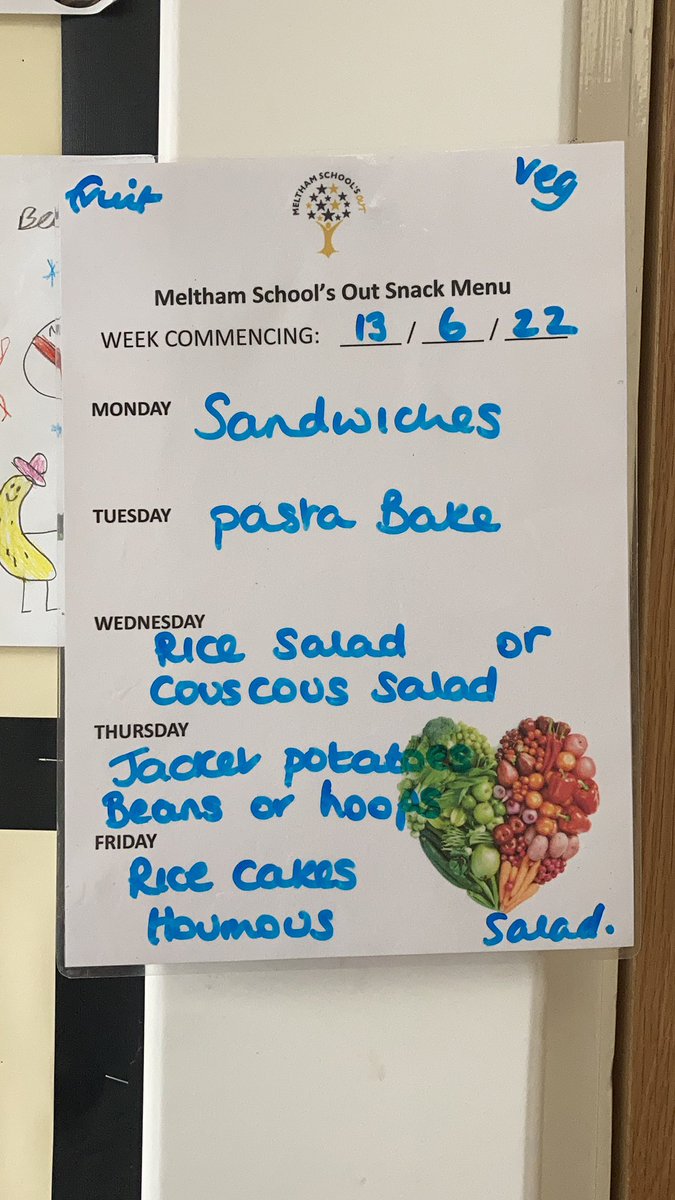 fruit
veg
MELTHAM SCHOOL'S OUT
Meltham School's Out Snack Menu
WEEK COMMENCING: 13 / 6 / 22
MONDAY Sandwiches
TUESDAY pasta Bake
WEDNESDAY
Rice Salad or
Couscous Salad
THURSDAY
Jacket potatoes
Beans or hoops
FRIDAY
Rice Cakes
Houmous
Salad.